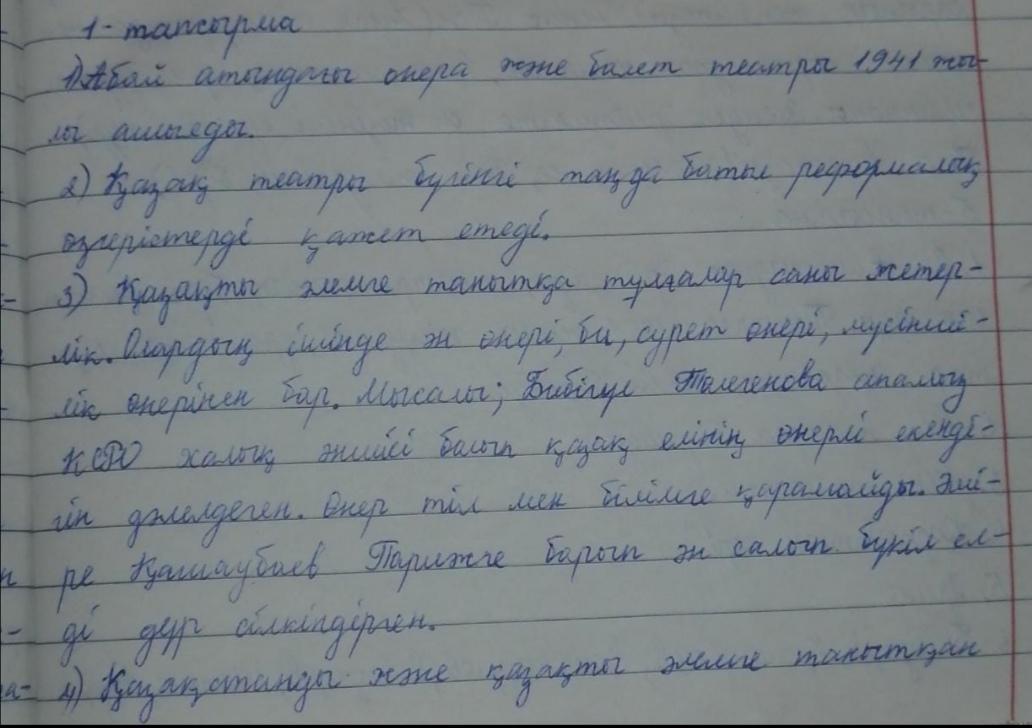 1- тапсырма
1) Абай атындағы опера және балет театры 1941 жы-
лы ашылды.
2) Қазақ театры бүгінгі таңда батыл реформалық
өзгерістерді қажет етеді.
3) Қазақты әлемге танытқа тұлғалар саны жетер-
лік. Олардың ішінде ән өнері, би, сурет өнері, мүсінші-
лік өнерінен бар. Мысалы; Бибігүл Төлегенова апамыз
КСРО халық әншісі болып қазақ елінің өнерлі екенді-
гін дәлелдеген. Өнер тіл мен білімге қарамайды. Әмі-
ре Қашаубаев Парижге барып ән салып бүкіл ел-
ді дүр сілкіндірген.
4) Қазақстанды және қазақты әлемге танытқан